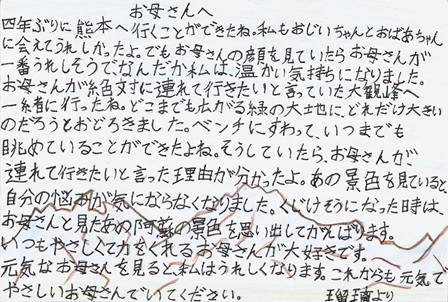 お母さんへ
四年ぶりに熊本へ行くことができたね。私もおじいちゃんとおばあちゃん
に会えてうれしかったよ。でもお母さんの顔を見ていたらお母さんが
一番うれしそうで、なんだか私は、温かい気持ちになりました。
お母さんが絶対に連れて行きたいと言っていた大観峰へ
一緒に行ったね。どこまでも広がる緑の大地に、どれだけ大きい
のだろうとおどろきました。ベンチにすわって、いつまでも
眺めていることができたよね。そうしていたら、お母さんが、
連れて行きたいと言った理由が分かったよ。あの景色を見ていると、
自分の悩みが気にならなくなりました。くじけそうになった時は、
お母さんと見たあの阿蘇の景色を思い出してがんばります。
いつもやさしくて力をくれるお母さんが大好きです。
元気なお母さんを見ると、私はうれしくなります。これからも元気で
やさしいお母さんでいてください。 瑠璃より